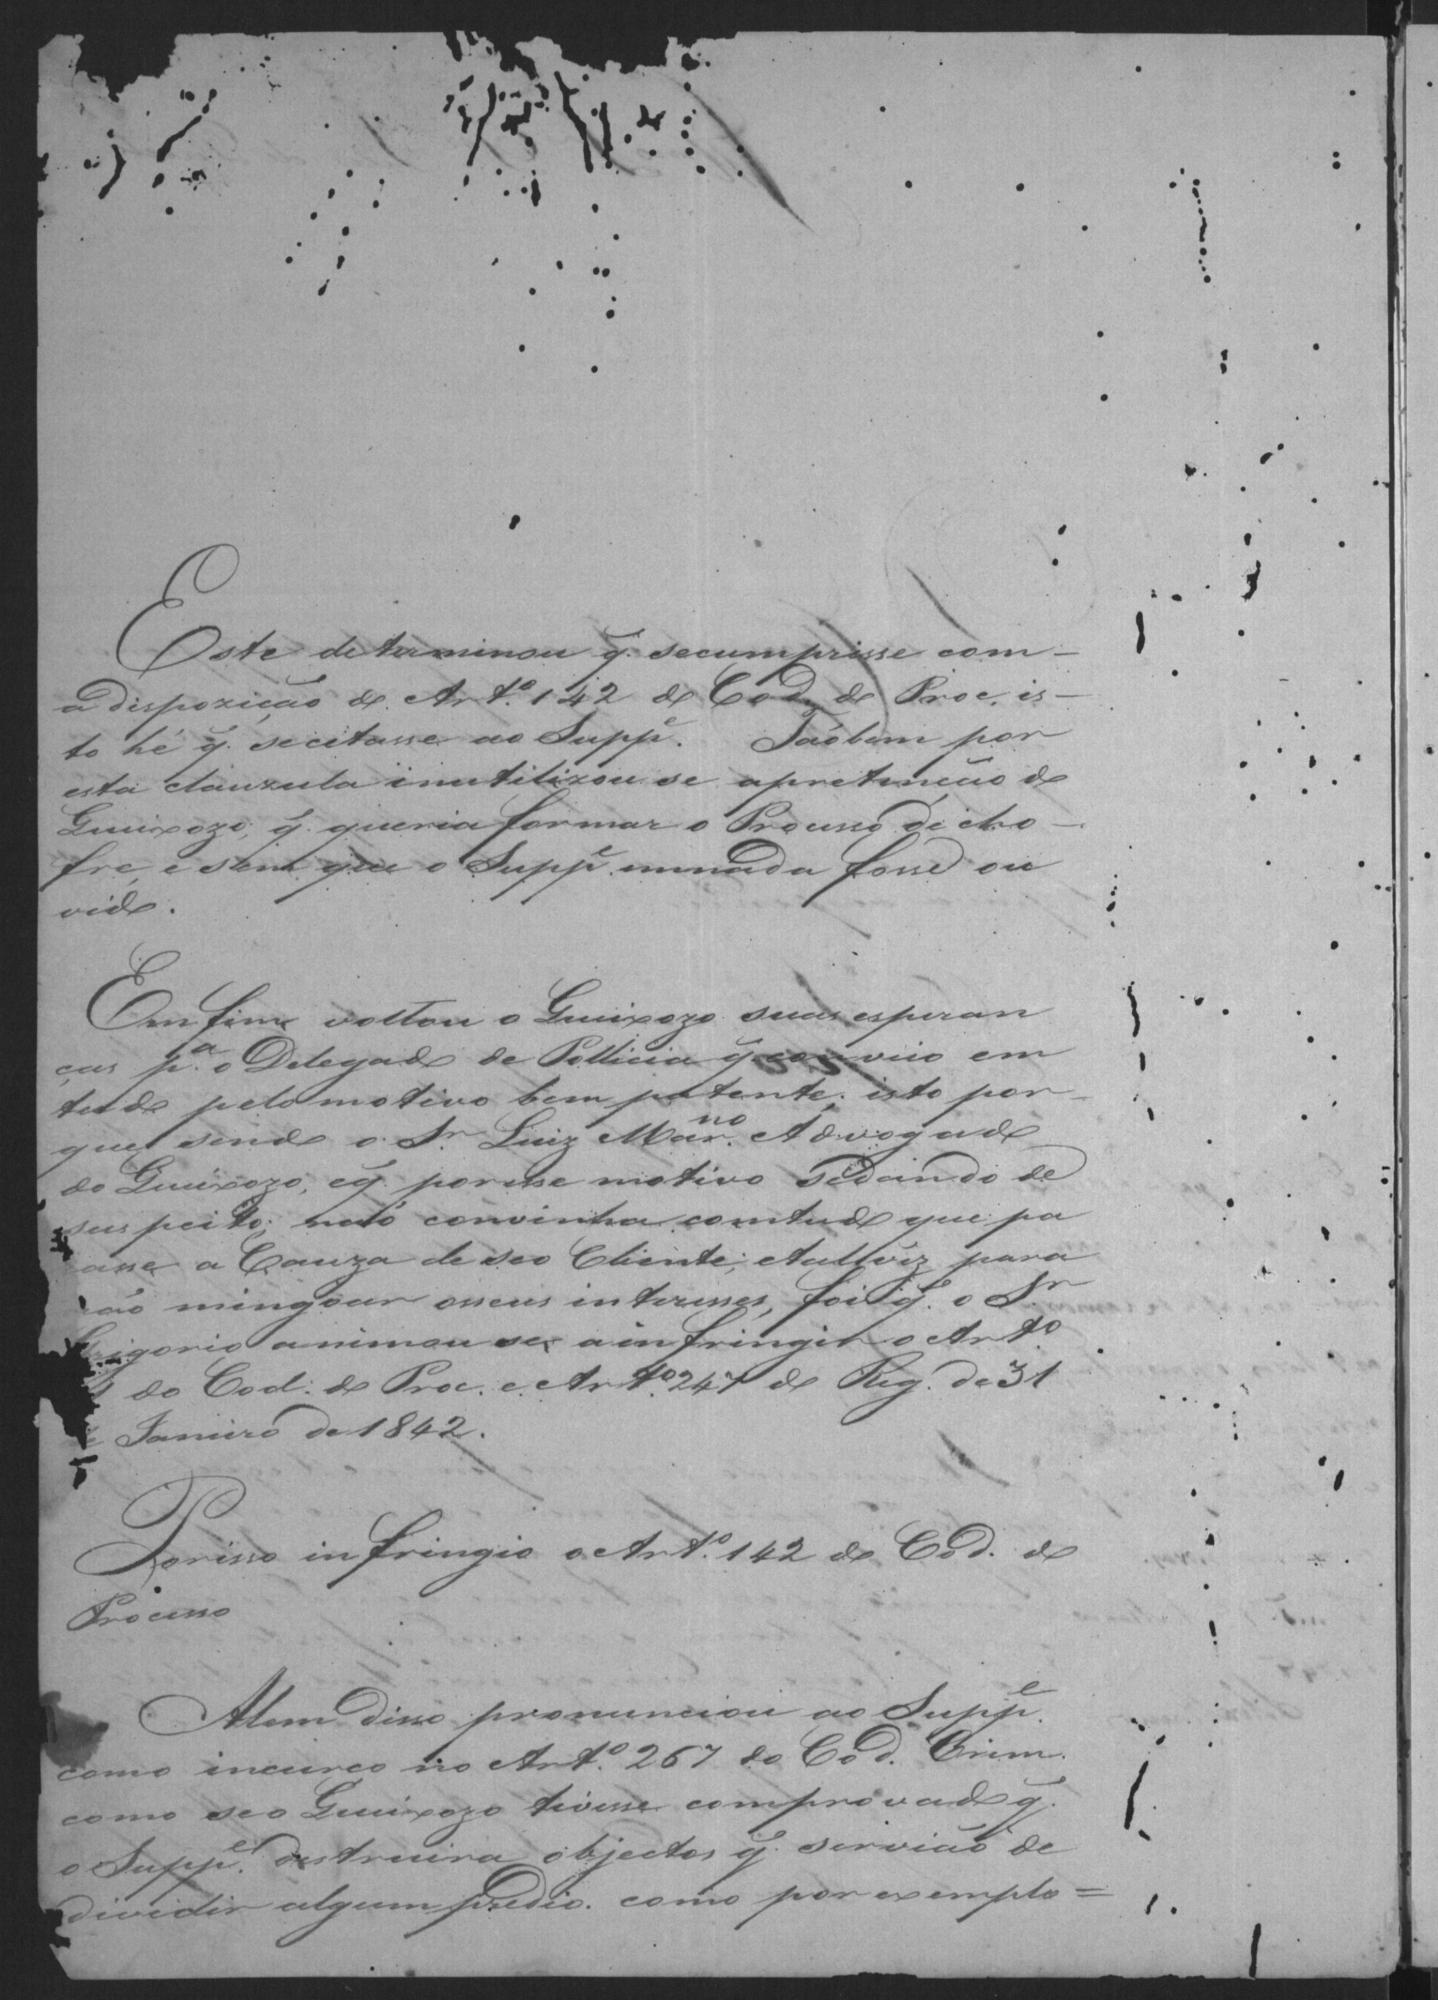 Este determinou q̃. secumprisse com-
a dispozição do Artº. 142 do Cod. do Proc. is-
to hé q̃. secitasse ao Suppᵉ. Taobem por
esta clauzula inutilizou se apretenção do
Queixozo, q̃. queria formar o Processo de cho-
fre, e sem que o Suppᵉ. emnada fosse ou
vido.
Em fim voltou o Queixozo suas esperan
ças pª. o Delegado de Pollicia q̃. conveio em
tudo pelo motivo bem patente, isto por-
que sendo o Sʳ Luiz Marⁿᵒ. Advogado
do Queixozo, eq̃. poresse motivo sedeindo de
suspeito, naõ convinha comtudo que pa
asse a Cauza de seo Cliente; etalvez para
não mingoar osseus interesses, foi q̃. o Sʳ
Grigorio animou se a infringir o Artº.
do Cod. do Proc. e Artº. 247 do Reg. de 31
de Janeiro de 1842.
Porisso infringio o Artº. 142 do Cod. do
Processo
Alem disso pronunciou ao Suppᵉ.
como incurco no Artº. 267 do Cod. Crim.
como seo Queixozo tivesse comprovado q̃.
o Suppᵉ. destruira objectos q̃. servião de
dividir algum predio. como por exemplo=